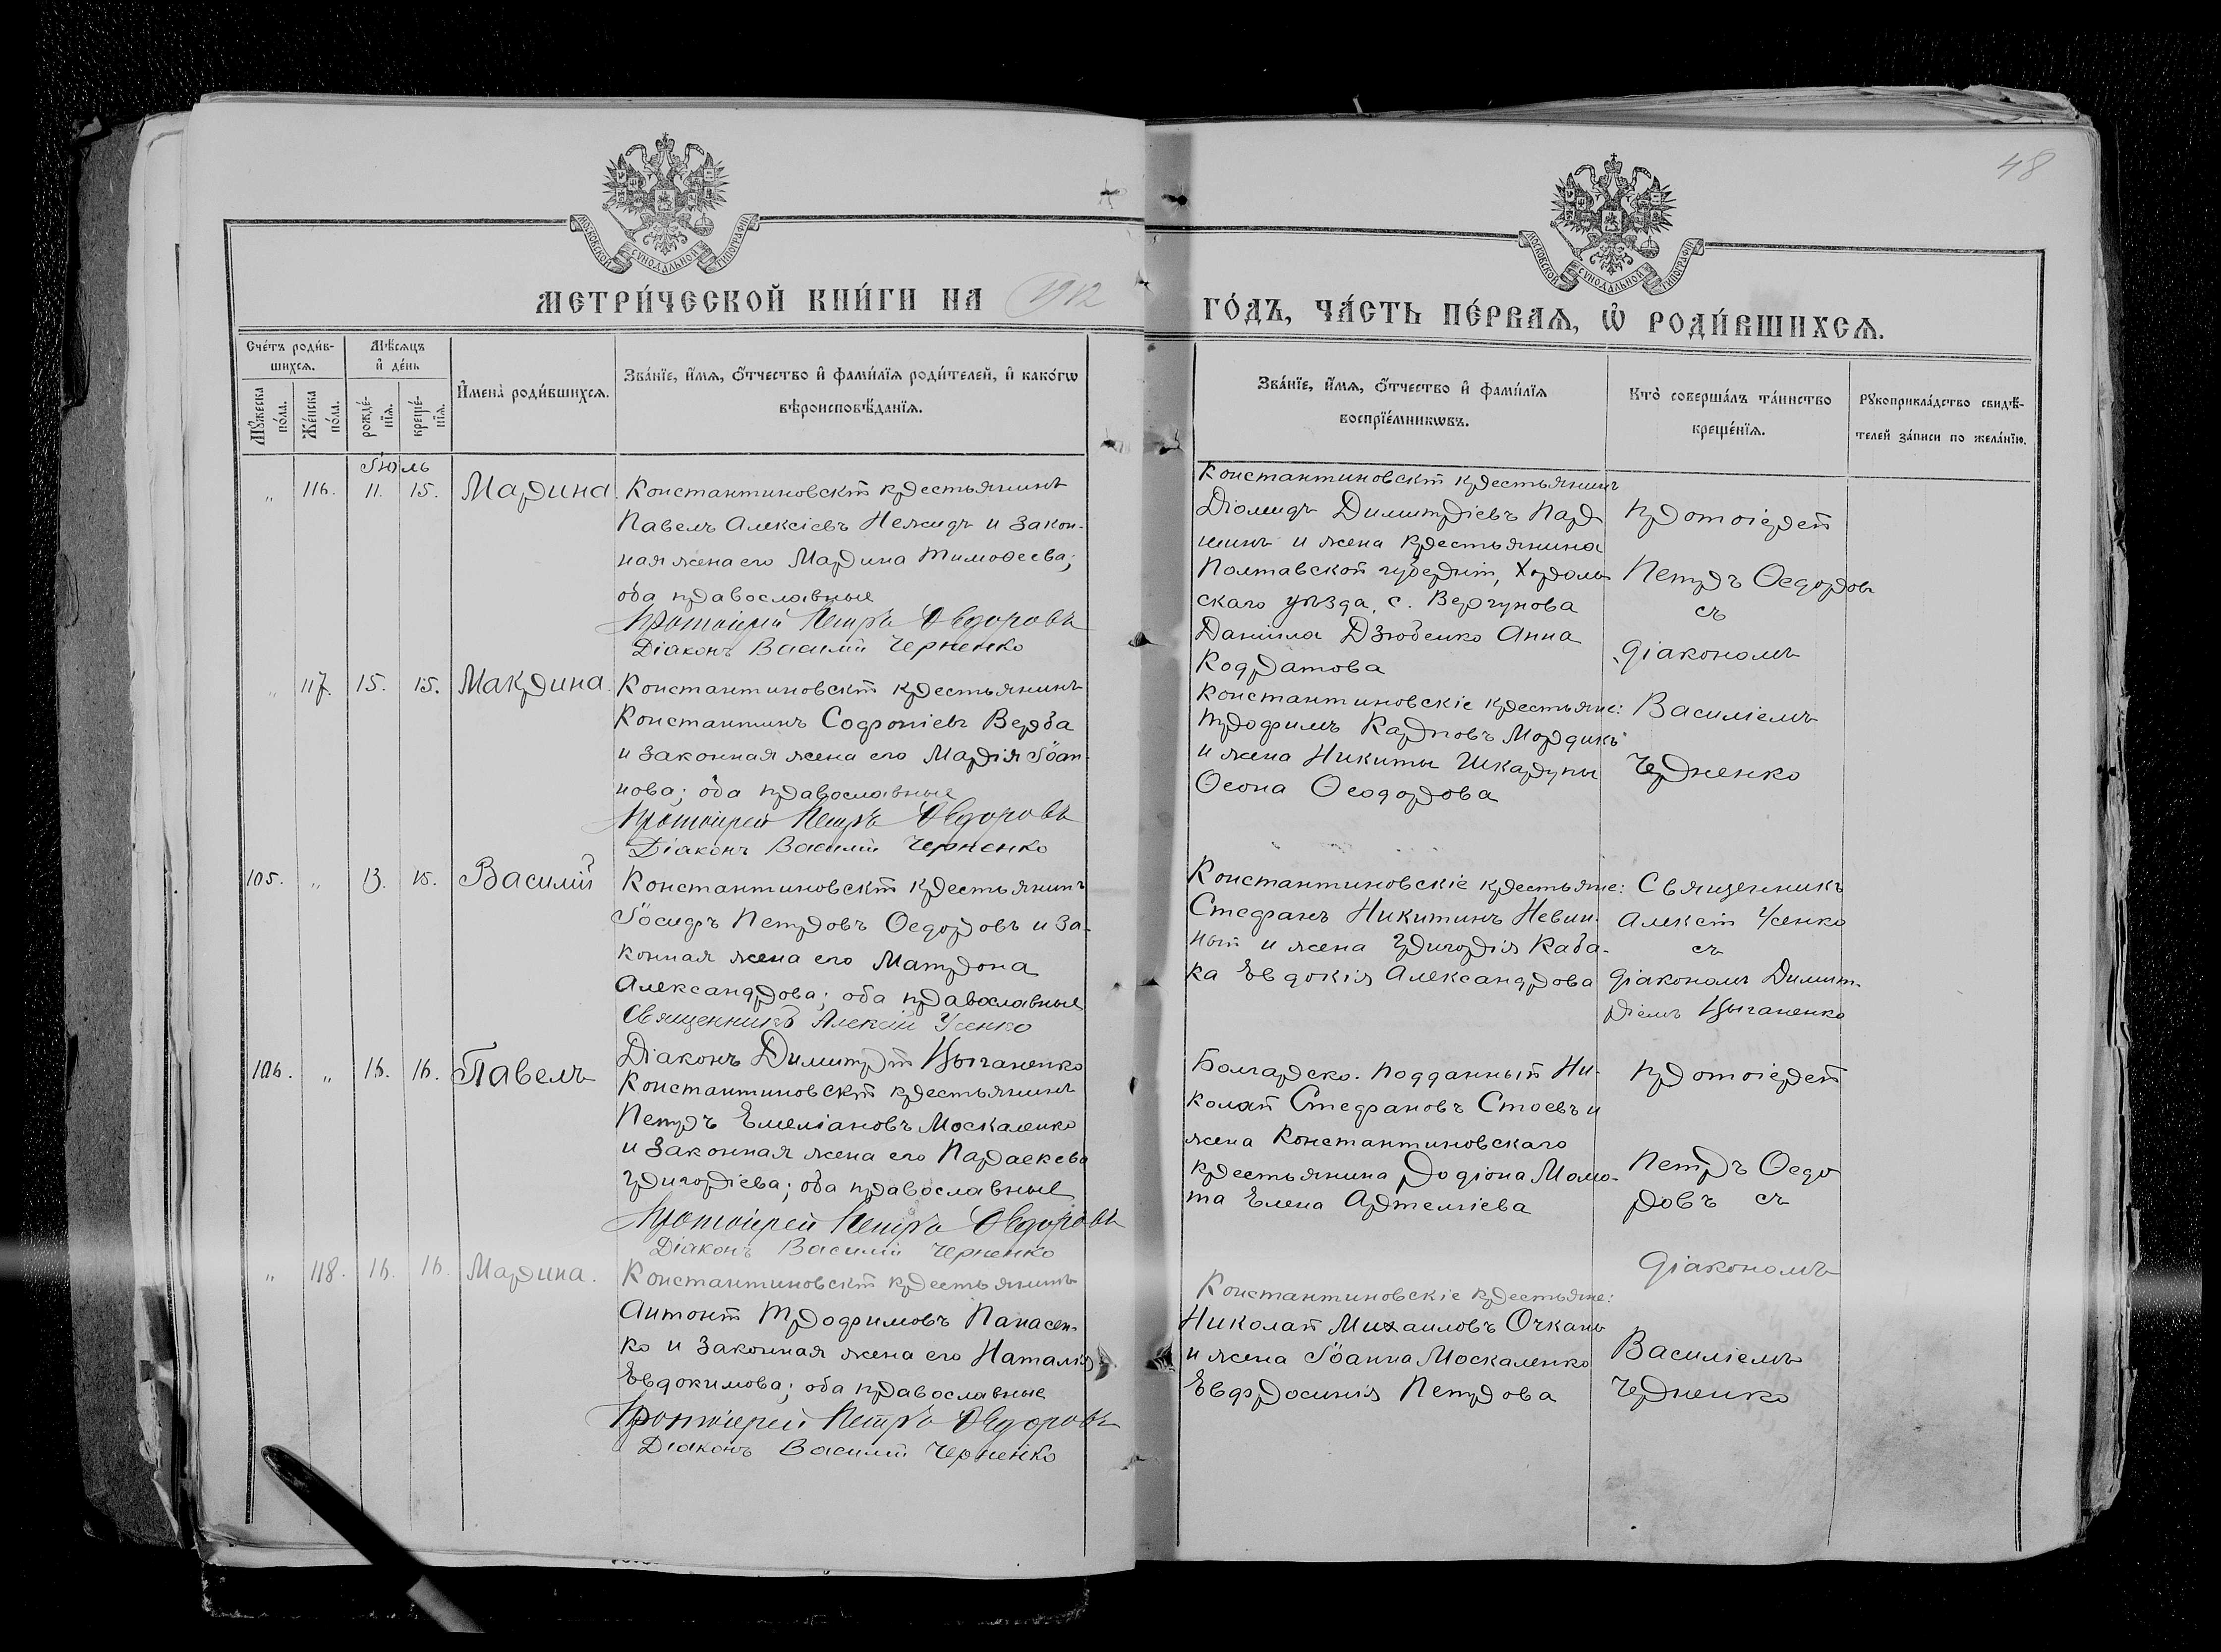 48
МОСКОВСКОЙ СѴНОДАЛЬНОЙ ТИПОГРАФІИ
МОСКОВСКОЙ СѴНОДАЛЬНОЙ ТИПОГРАФІИ
МЕТРИ́ЧЕСКОЙ КНИ́ГИ НА 1912
ГО́ДЪ, ЧА́СТЬ ПЕ́РВАѦ, Ѡ РОДИ́ВШИХСѦ.
Сче́тъ роди́в-
шихсѧ.
Мꙋ́жеска по́ла.
Же́нска по́ла.
Мѣ́сѧцъ
и҆ де́нь
рожде́-
нїѧ.
креще́-
нїѧ.
И҆мена̀ роди́вшихсѧ.
Зва́нїе, и҆́мѧ, ѻ҆́тчество и҆ фамі́лїѧ роди́телей, и҆ како́гѡ
вѣроисповѣ́данїѧ.
Зва́нїе, и҆́мѧ, ѻ҆́тчество и҆ фамі́лїѧ
воспрїе́мникѡвъ.
Кто̀ соверша́лъ та́инство
креще́нїѧ.
Рꙋкоприкла́дство свидѣ́-
телей за́писи по жела́нїю.
Іюль
„ 116. 11. 15. Марина.
Константиновскій крестьянинъ
Павелъ Алексіевъ Нежидъ и закон-
ная жена его Марина Тимоѳеева;
оба православные
Протоіерей Петръ Ѳедоровъ
Діаконъ Василій Черненко
Константиновскій крестьянинъ
Діомидъ Димитріевъ Пар
шинъ и жена крестьянина
Полтавской губерніи, Хороль
скаго уѣзда, с. Вергунова
Даніила Дзюбенко Анна
Кодратова
Протоіерей
Петръ Ѳедоровъ
съ
діакономъ
Василіемъ
Черненко
„ 117. 15. 15. Макрина.
Константиновскій крестьянинъ
Константинъ Софроніевъ Верба
и законная жена его Марія Іоан-
нова; оба православные
Протоіерей Петръ Ѳедоровъ
Діаконъ Василій Черненко
Константиновскіе крестьяне:
Трофимъ Карповъ Мордикъ
и жена Никиты Шкарупы
Ѳеона Ѳеодорова
105. „ 13. 15. Василій
Константиновскій крестьянинъ
Іосифъ Петровъ Ѳедоровъ и за-
конная жена его Матрона
Александрова; оба православные
Священникъ Алексій Усенко
Діаконъ Димитрій Цыганенко
Константиновскіе крестьяне:
Стефанъ Никитинъ Невин-
ный и жена Григорія Каба-
ка Евдокія Александрова
Священникъ
Алексій Усенко
съ
діакономъ Димит-
ріемъ Цыганенко
106. „ 16. 16. Павелъ
Константиновскій крестьянинъ
Петръ Емеліановъ Москаленко
и законная жена его Параскева
Григоріева; оба православные
Протоіерей Петръ Ѳедоровъ
Діаконъ Василій Черненко
Болгарско-подданный Ни-
колай Стефановъ Стоевъ и
жена Константиновскаго
крестьянина Родіона Момо-
та Елена Артеміева
Протоіерей
Петръ Ѳедо
ровъ съ
діакономъ
Василіемъ
Черненко
„ 118. 16. 16. Марина.
Константиновскій крестьянинъ
Антоній Трофимовъ Панасен-
ко и законная жена его Наталія
Евдокимова; оба православные
Протоіерей Петръ Ѳедоровъ
Діаконъ Василій Черненко
Константиновскіе крестьяне:
Николай Михаиловъ Очкань
и жена Іоанна Москаленко
Евфросинія Петрова